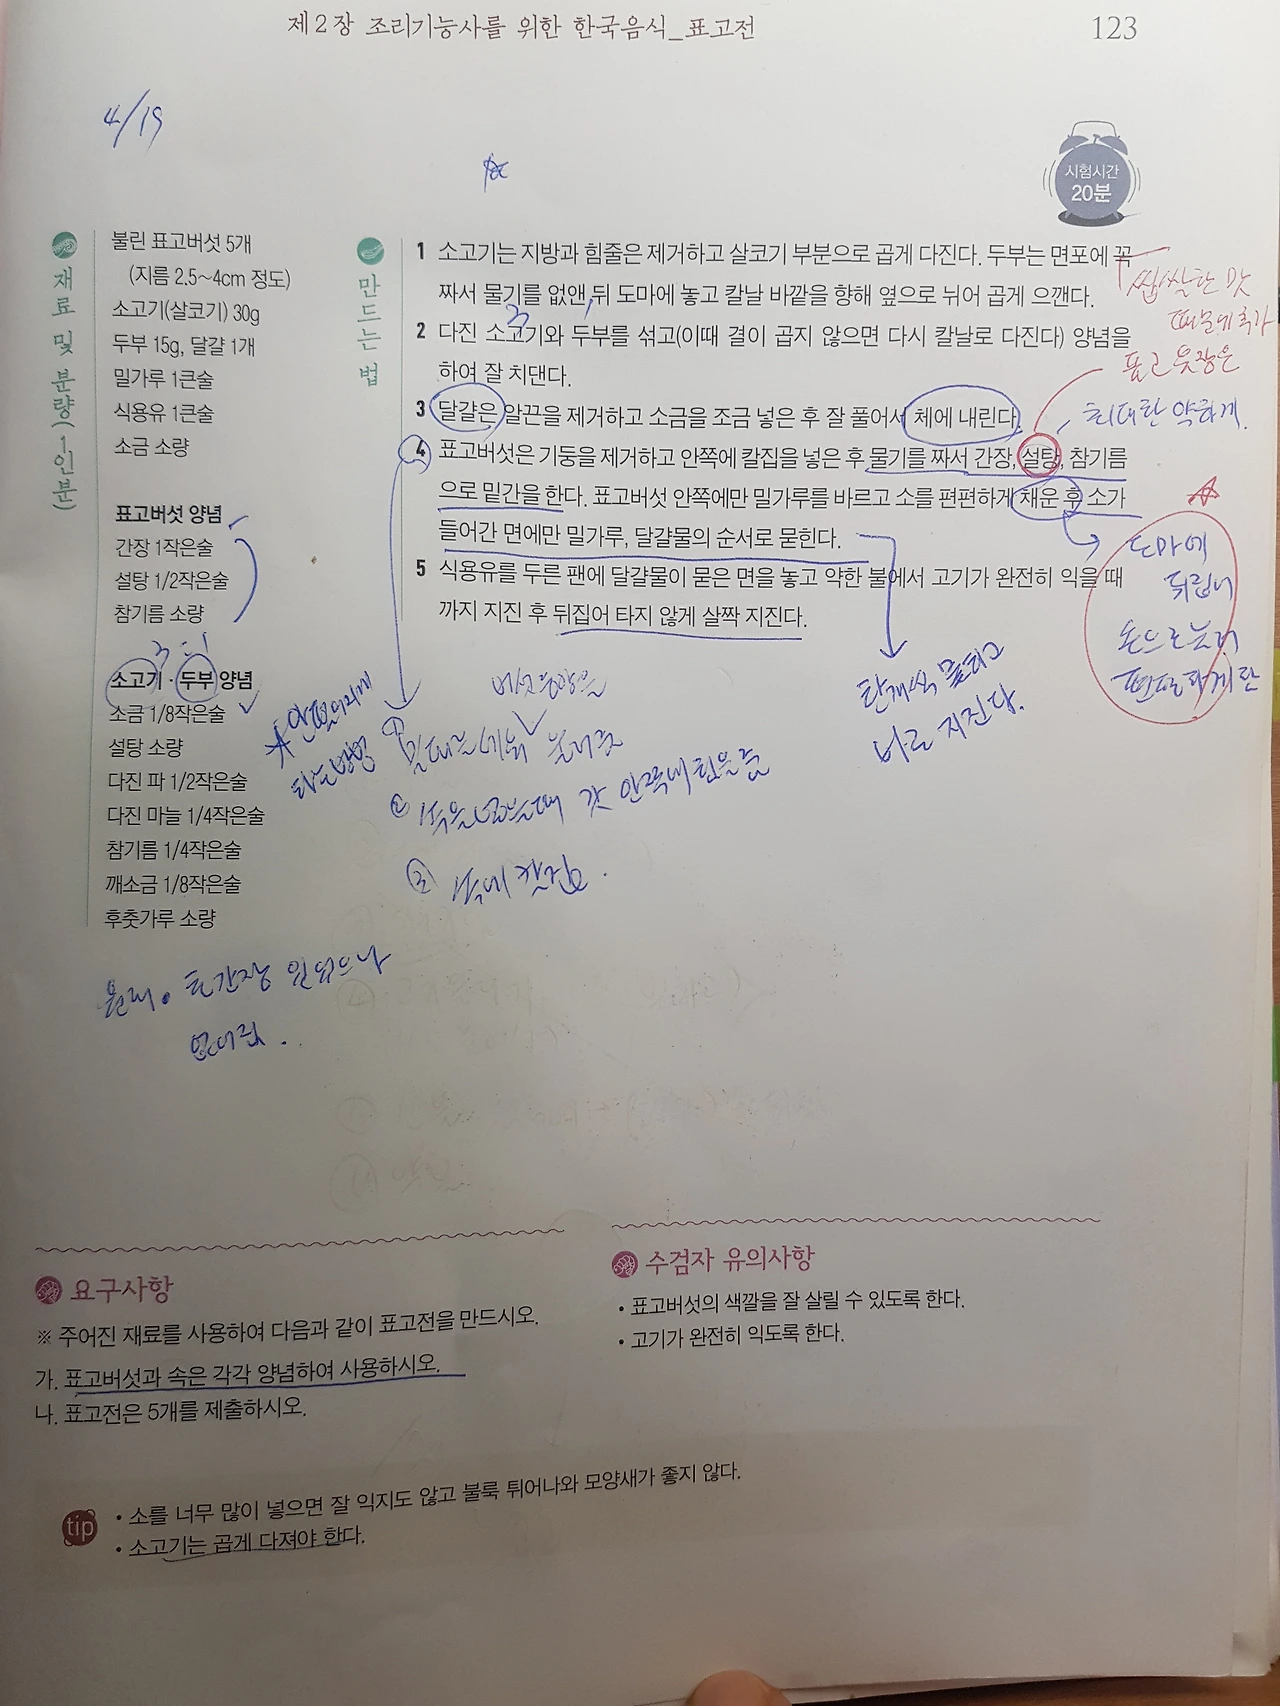 제2장 조리기능사를 위한 한국음식_표고전
123
4/19
시험시간
20분
재료 및 분량(1인분)
불린 표고버섯 5개
(지름 2.5~4cm 정도)
소고기(살코기) 30g
두부 15g, 달걀 1개
밀가루 1큰술
식용유 1큰술
소금 소량
표고버섯 양념
간장 1작은술
설탕 1/2작은술
참기름 소량
3 : 1
소고기 · 두부 양념
소금 1/8작은술
설탕 소량
다진 파 1/2작은술
다진 마늘 1/4작은술
참기름 1/4작은술
깨소금 1/8작은술
후춧가루 소량
만드는 법
1 소고기는 지방과 힘줄은 제거하고 살코기 부분으로 곱게 다진다. 두부는 면포에 꼭
짜서 물기를 없앤 뒤 도마에 놓고 칼날 바깥을 향해 옆으로 뉘어 곱게 으깬다.
3 1
2 다진 소고기와 두부를 섞고(이때 결이 곱지 않으면 다시 칼날로 다진다) 양념을
하여 잘 치댄다.
3 달걀은 알끈을 제거하고 소금을 조금 넣은 후 잘 풀어서 체에 내린다.
4 표고버섯은 기둥을 제거하고 안쪽에 칼집을 넣은 후 물기를 짜서 간장, 설탕, 참기름
으로 밑간을 한다. 표고버섯 안쪽에만 밀가루를 바르고 소를 편편하게 채운 후 소가
들어간 면에만 밀가루, 달걀물의 순서로 묻힌다.
5 식용유를 두른 팬에 달걀물이 묻은 면을 놓고 약한 불에서 고기가 완전히 익을 때
까지 지진 후 뒤집어 타지 않게 살짝 지진다.
씁쌀한 맛
때문에 추가
표고 밑장은
최대한 약하게.
도마에
뒤집어
손으로 눌러
편편하게 한
한개씩 묻히고
바로 지진다.
② 속을 넣을때 갓 안쪽에
③ 속에 칼집.
없어짐.
요구사항
※ 주어진 재료를 사용하여 다음과 같이 표고전을 만드시오.
가. 표고버섯과 속은 각각 양념하여 사용하시오.
나. 표고전은 5개를 제출하시오.
수검자 유의사항
• 표고버섯의 색깔을 잘 살릴 수 있도록 한다.
• 고기가 완전히 익도록 한다.
tip
• 소를 너무 많이 넣으면 잘 익지도 않고 불룩 튀어나와 모양새가 좋지 않다.
• 소고기는 곱게 다져야 한다.